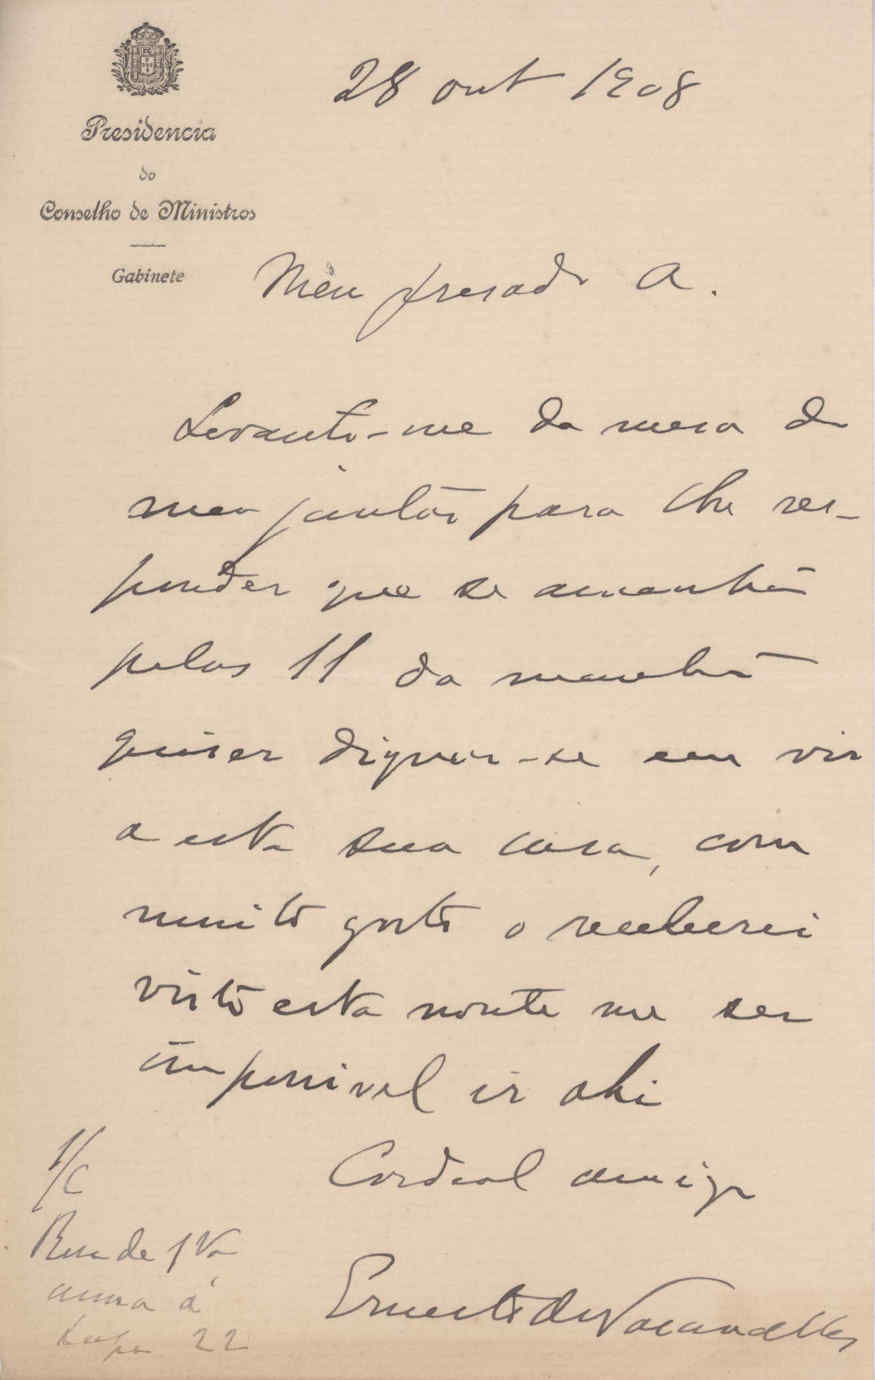 28 out 1908
Presidencia
do
Conselho de Ministros
Gabinete
Meu presado A.
Levanto-me da mesa do
meu jantar para lhe res-
ponder que se amanhã
pelas 11 da manhã
quiser dignar-se em vir
a esta sua casa, com
muito gosto o receberei
visto esta noute me ser
impossivel ir ahi
Cordeal amigo
Ernesto de Vasconcellos
S/C
Rua de S.
anna á
Lapa 22